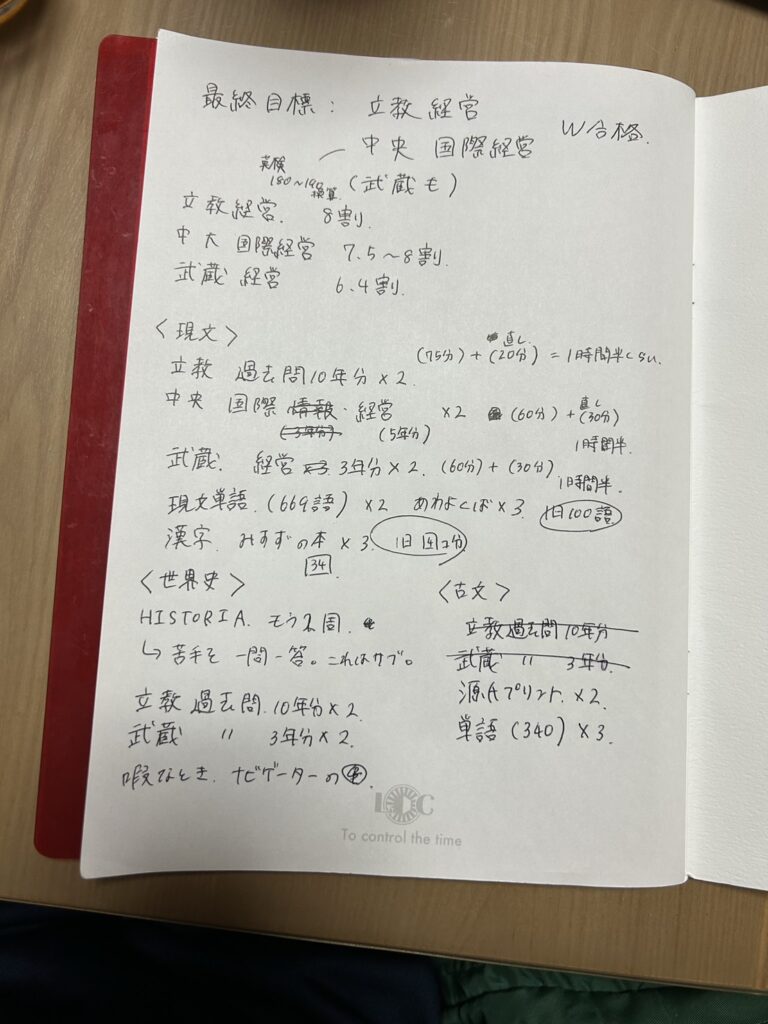 最終目標： 立教 経営
中央 国際経営 W合格.
英検 180～190 換算 (武蔵も)
立教経営. 8割.
中大 国際経営 7.5～8割.
武蔵 経営 6.4割.
〈現文〉
立教 過去問10年分×2. (75分)+(20分)直し=1時間半くらい.
中央 国際 情報・経営 ×2 (60分)+(30分)直し
(3年分) (5年分) 1時間半.
武蔵. 経営 3年分×2. (60分)+(30分)
1時間半.
現文単語.(669語)×2 あわよくば×3. 1日100語
漢字. みすずの本×3. 1日
34
〈世界史〉
HISTORIA. もう2周.
↳苦手を 一問一答。これはサブ。
立教 過去問.10年分×2.
武蔵 〃 3年分×2.
暇なとき. ナビゲーターの
〈古文〉
立教過去問10年分
武蔵 〃 3年分.
源氏プリント.×2.
単語(340)×3.
To control the time